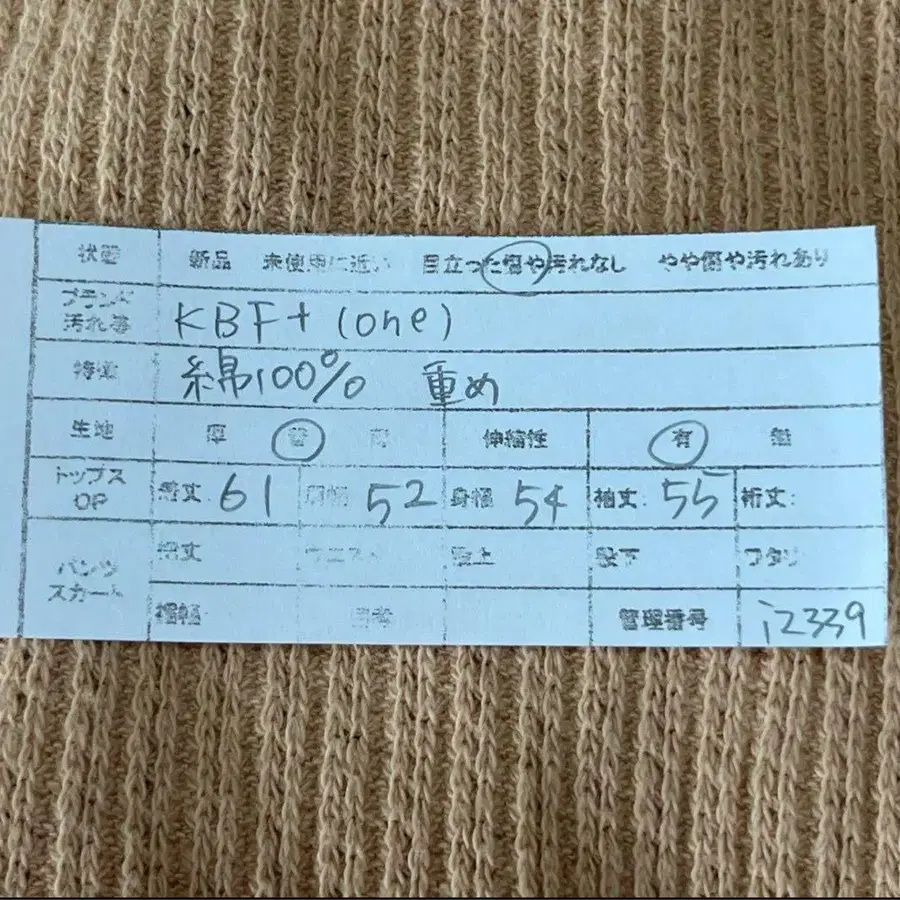 状態 新品 未使用に近い 目立った傷や汚れなし やや傷や汚れあり
ブランド KBF+ (one)
汚れ等
特徴 綿100% 重め
生地 厚 普 伸縮性 有 無
トップス 着丈: 61 肩幅 52 身幅 54 袖丈: 55 裄丈:
OP
パンツ 総丈 ウエスト 股上 股下 ワタリ
スカート 裾幅 管理番号 i2339